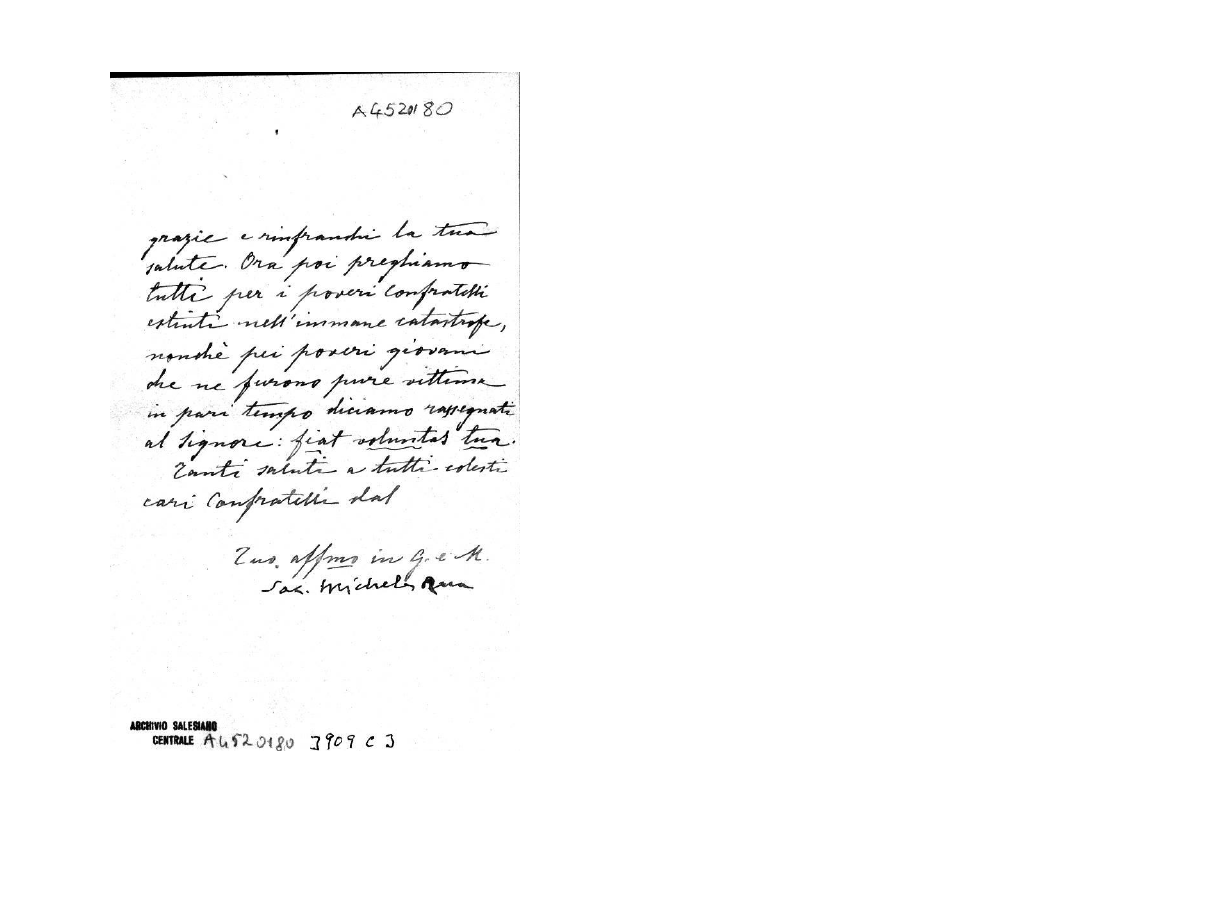 A4520180
grazie e rinfranchi la tua
salute. Ora poi preghiamo
tutti per i poveri Confratelli
estinti nell'immane catastrofe,
nonchè pei poveri giovani
che ne furono pure vittima
in pari tempo diciamo rassegnati
al Signore: fiat voluntas tua.
Tanti saluti a tutti codesti
cari Confratelli dal
Tuo affmo in G. e M.
Sac. Michele Rua
ARCHIVIO SALESIANO
CENTRALE A4520180 3909 C 3